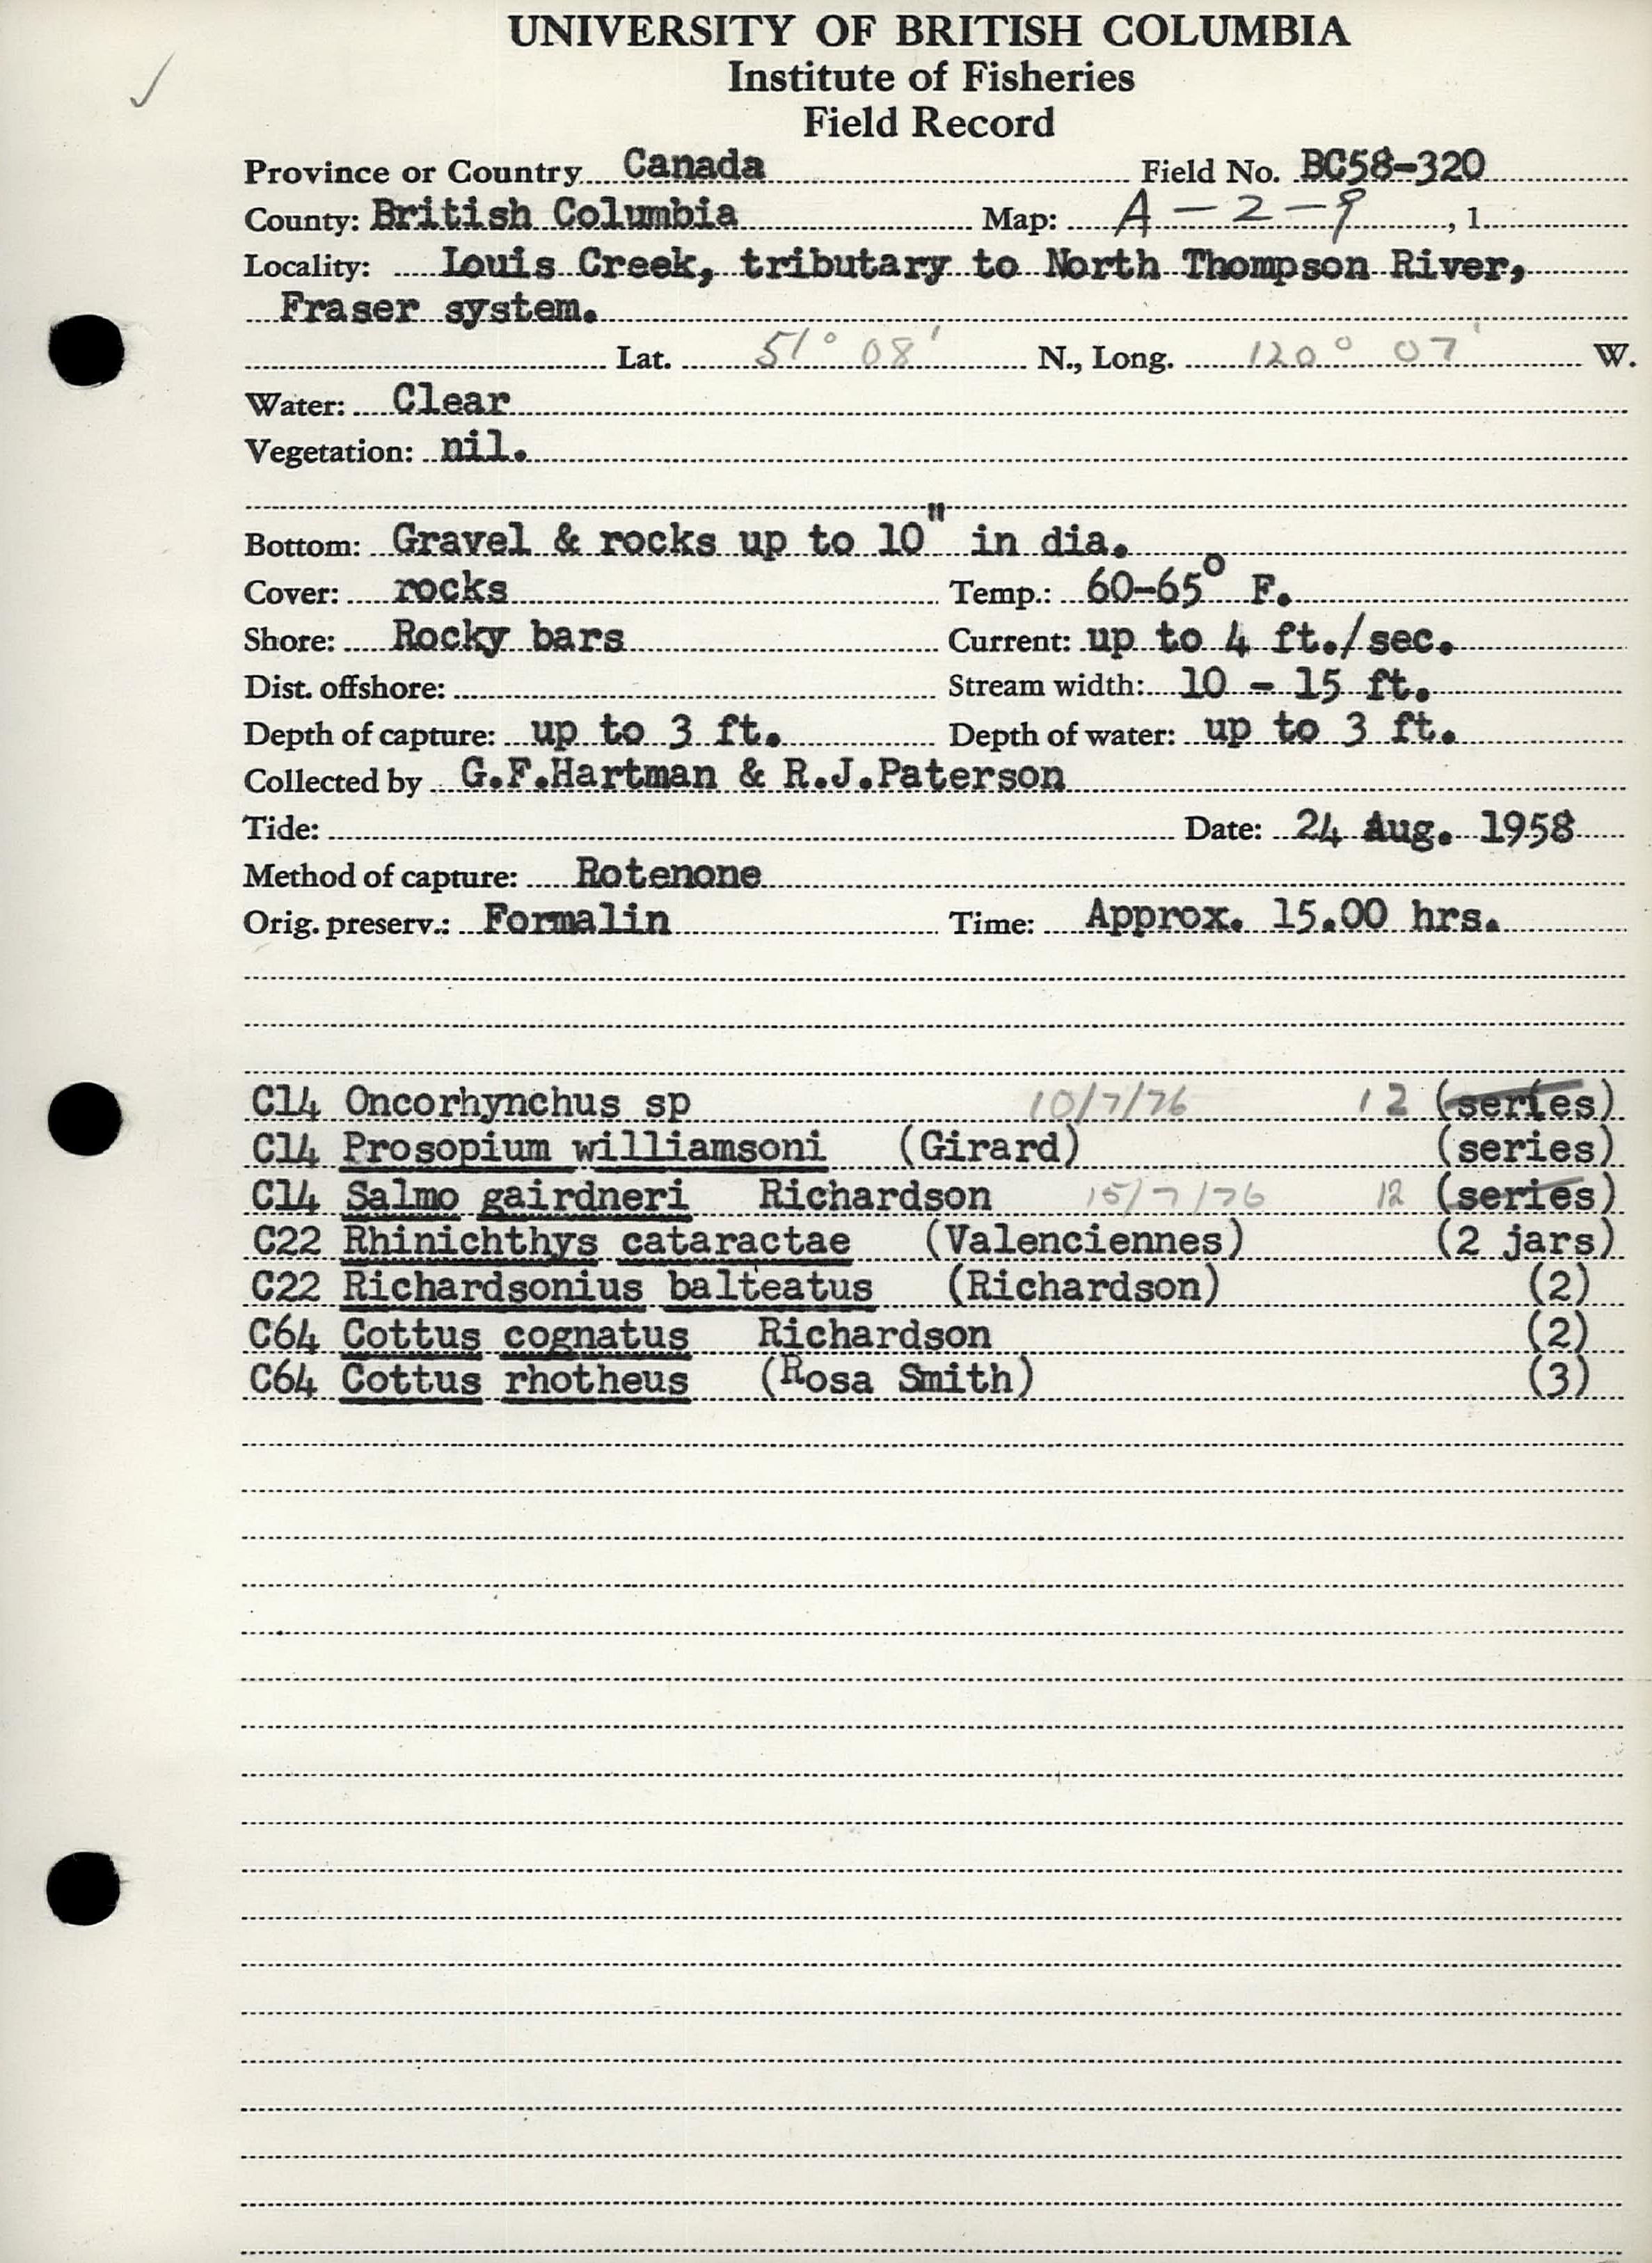 UNIVERSITY OF BRITISH COLUMBIA
Institute of Fisheries
Field Record
Province or Country Canada Field No. BC58-320
County: British Columbia Map: A-2-9, 1
Locality: Louis Creek, tributary to North Thompson River,
Fraser system.
Lat. 51° 08' N., Long. 120° 07' W.
Water: Clear
Vegetation: nil.
Bottom: Gravel & rocks up to 10" in dia.
Cover: rocks Temp.: 60-65° F.
Shore: Rocky bars Current: up to 4 ft./sec.
Dist. offshore: Stream width: 10 - 15 ft.
Depth of capture: up to 3 ft. Depth of water: up to 3 ft.
Collected by G.F.Hartman & R.J.Paterson
Tide: Date: 24 Aug. 1958
Method of capture: Rotenone
Orig. preserv.: Formalin Time: Approx. 15.00 hrs.
C14 Oncorhynchus sp 10/7/76 12 (series)
C14 Prosopium williamsoni (Girard) (series)
C14 Salmo gairdneri Richardson 15/7/76 12 (series)
C22 Rhinichthys cataractae (Valenciennes) (2 jars)
C22 Richardsonius balteatus (Richardson) (2)
C64 Cottus cognatus Richardson (2)
C64 Cottus rhotheus (Rosa Smith) (3)